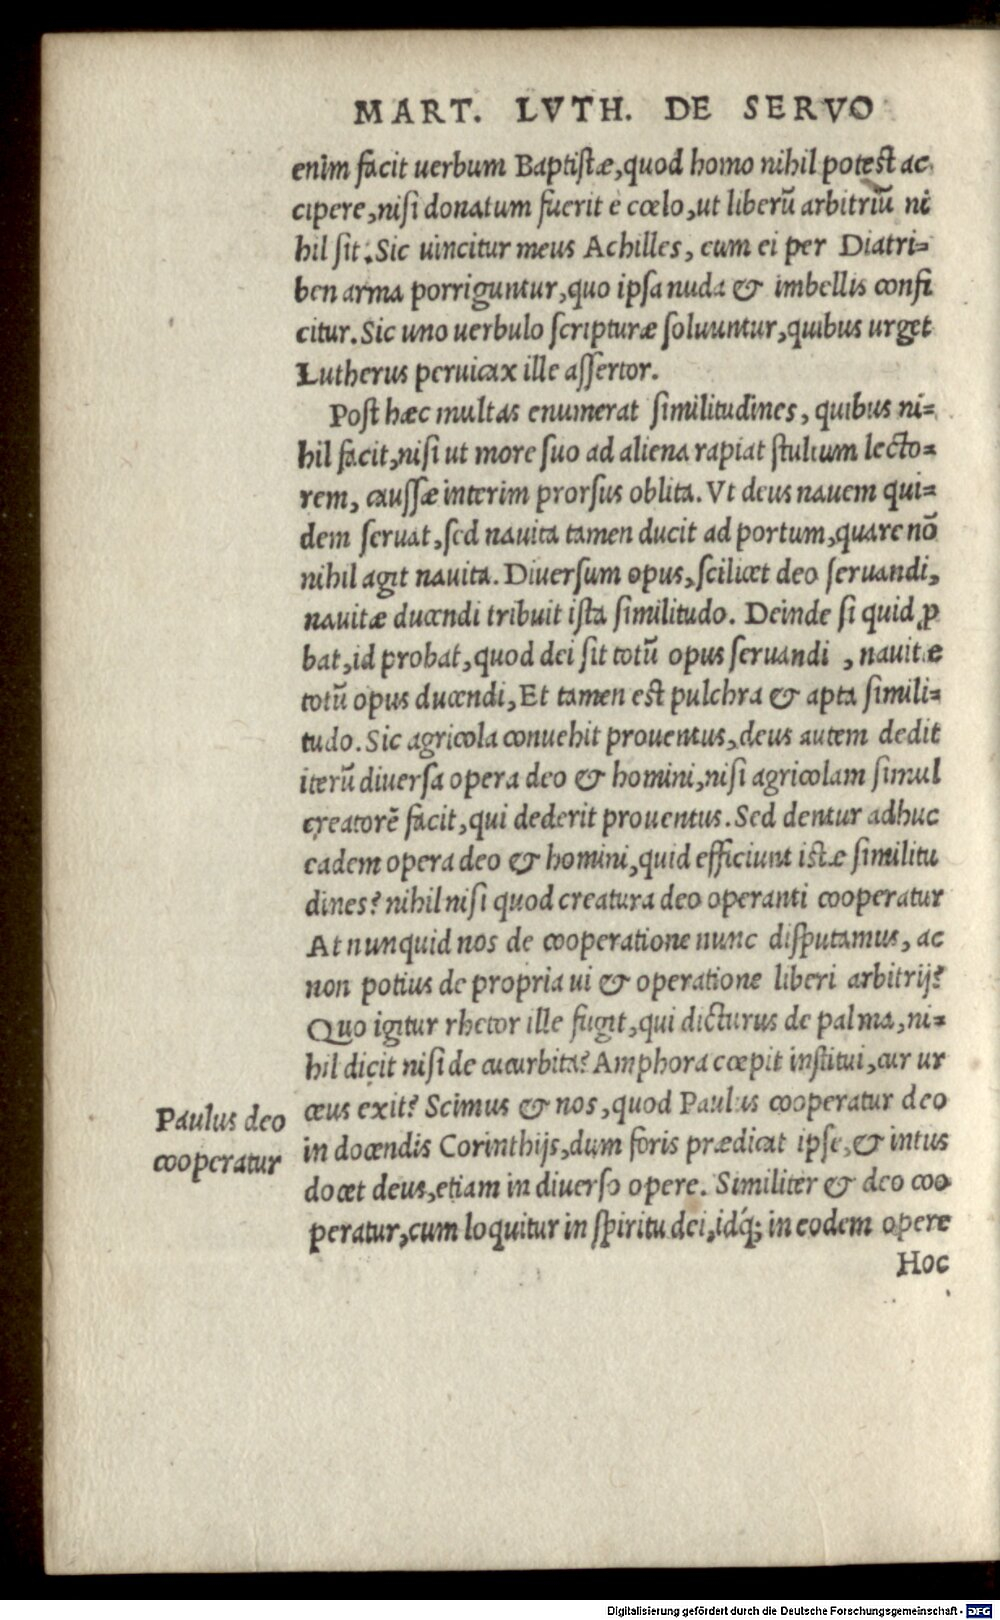 MART. LVTH. DE SERVO
enim facit uerbum Baptistæ, quod homo nihil potest ac
cipere, nisi donatum fuerit e cœlo, ut liberũ arbitriũ ni
hil sit. Sic uincitur meus Achilles, cum ei per Diatri=
ben arma porriguntur, quo ipsa nuda & imbellis confi
citur. Sic uno uerbulo scripturæ soluuntur, quibus urget
Lutherus peruicax ille assertor.
Post hæc multas enumerat similitudines, quibus ni=
hil facit, nisi ut more suo ad aliena rapiat stultum lecto=
rem, caussæ interim prorsus oblita. Vt deus nauem qui=
dem seruat, sed nauita tamen ducit ad portum, quare nõ
nihil agit nauita. Diuersum opus, scilicet deo seruandi,
nauitæ ducendi tribuit ista similitudo. Deinde si quid ꝓ
bat, id probat, quod dei sit totũ opus seruandi, nauitæ
totũ opus ducendi, Et tamen est pulchra & apta simili=
tudo. Sic agricola conuehit prouentus, deus autem dedit
iterũ diuersa opera deo & homini, nisi agricolam simul
creatorẽ facit, qui dederit prouentus. Sed dentur adhuc
eadem opera deo & homini, quid efficiunt istæ similitu
dines? nihil nisi quod creatura deo operanti cooperatur
At nunquid nos de cooperatione nunc disputamus, ac
non potius de propria ui & operatione liberi arbitrij?
Quo igitur rhetor ille fugit, qui dicturus de palma, ni=
hil dicit nisi de cucurbita? Amphora cœpit institui, cur ur
ceus exit? Scimus & nos, quod Paulus cooperatur deo
in docendis Corinthijs, dum foris prædicat ipse, & intus
docet deus, etiam in diuerso opere. Similiter & deo coo
peratur, cum loquitur in spiritu dei, idq́; in eodem opere
Hoc
Paulus deo
cooperatur
Digitalisierung gefördert durch die Deutsche Forschungsgemeinschaft - DFG